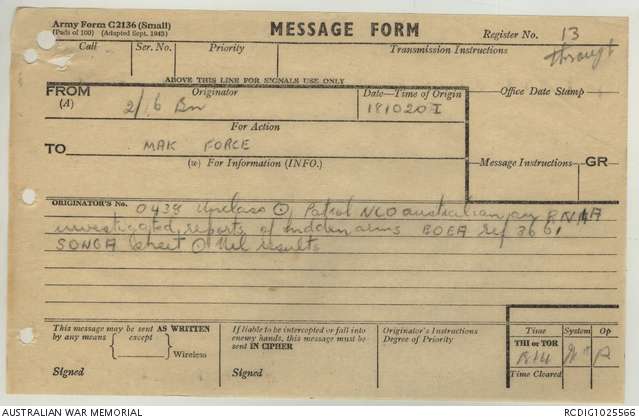 Army Form C2136 (Small)
(Pads of 100) (Adapted Sept. 1943)
MESSAGE FORM
Register No. 13
Call Ser. No. Priority Transmission Instructions
through
ABOVE THIS LINE FOR SIGNALS USE ONLY
FROM Originator Date—Time of Origin Office Date Stamp
(A) 2/6 Bn 181020 I
For Action
TO MAK FORCE
(w) For Information (INFO.) Message Instructions GR
ORIGINATOR'S No. 0439 Unclass Patrol NCO australian
investigated reports of hidden arms BOEA ref 3661
SONGA sheet Nil results
This message may be sent AS WRITTEN
by any means except
Wireless
Signed
If liable to be intercepted or fall into
enemy hands, this message must be
sent IN CIPHER
Signed
Originator's Instructions
Degree of Priority
Time System Op
THI or TOR
Time Cleared
AUSTRALIAN WAR MEMORIAL
RCDIG1025566